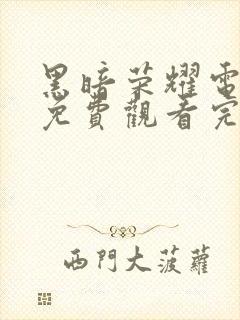 黑暗荣耀電
免費觀看完
西門大菠蘿